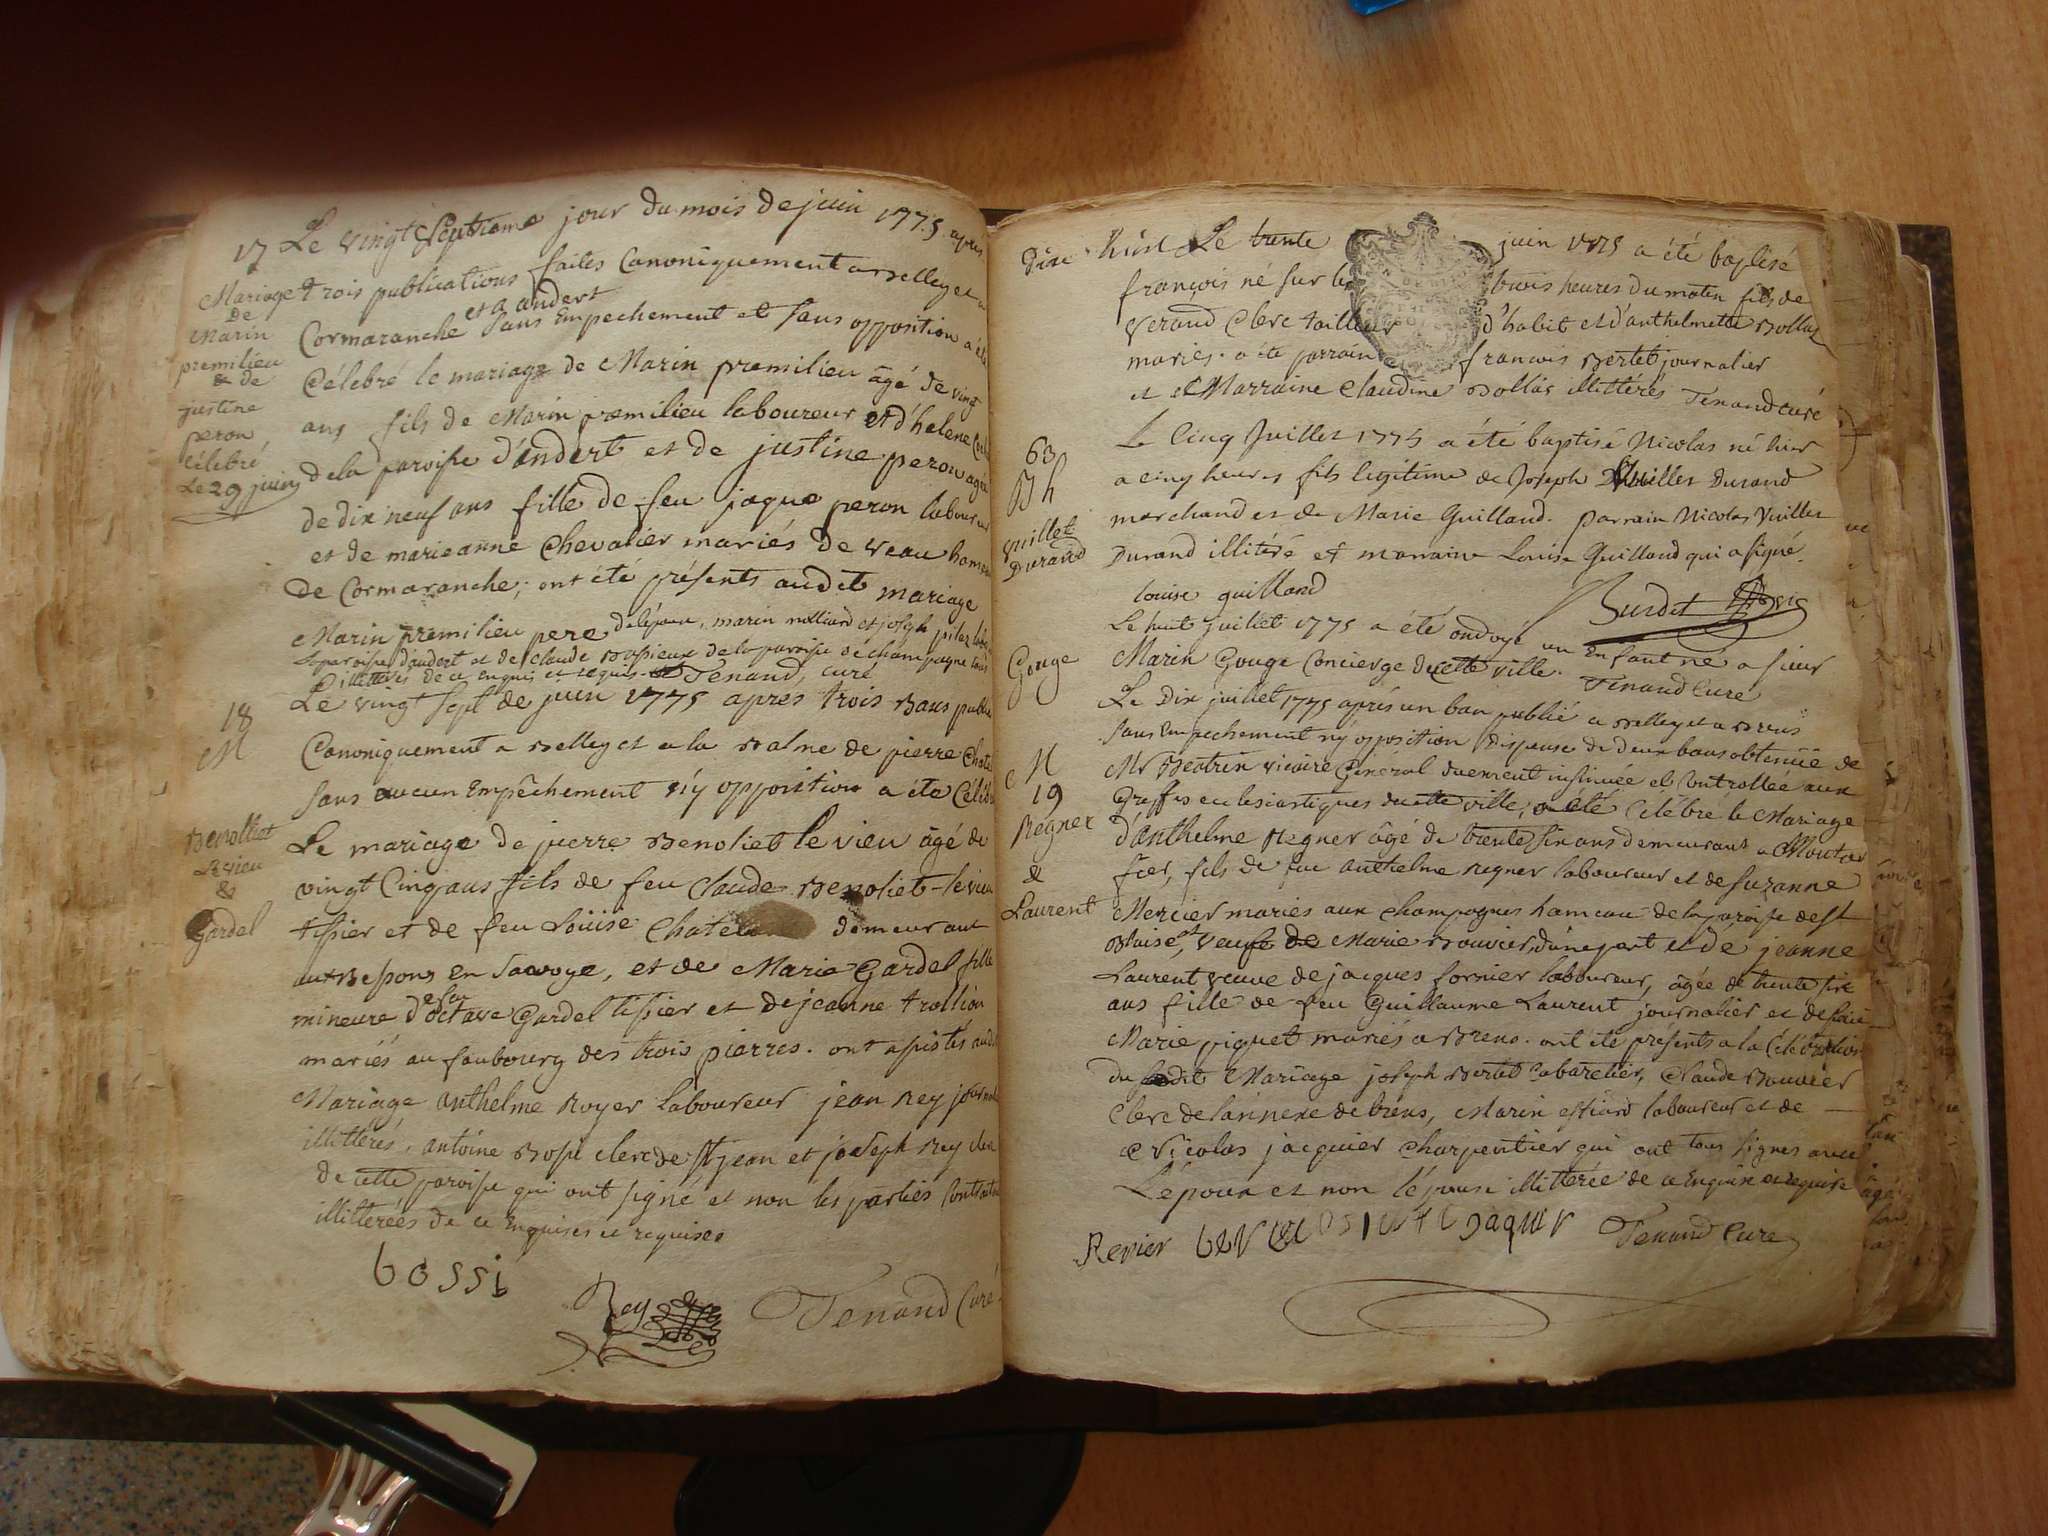 17 Le vingt Septieme jour du mois de juin 1775 apres
Mariage
de
Marin
premilieu
& de
justine
peron
célebré
Le 29 juin
trois publications faites Canoniquement a Belley et a
et a andert
Cormaranche Sans Empechement et Sans opposition a été
Célebré le mariage de Marin premilieu âgé de vingt
ans fils de Marin premilieu laboureur et d'helene
de la paroisse d'andert et de justine peron agée
de dix neuf ans fille de feu jaque peron laboureur
et de marieanne Chevalier mariés de veau hameau
de Cormaranche; ont été présents audit mariage
Marin premilieu pere de lépoux, marin molliard et joseph
La paroisse d'andert et de Claude de la paroisse de champagne tous
illitteres de ce enquis et requis Tenand, curé
18
M
Benolliet
Le vieu
&
Gardel
Le vingt sept de juin 1775 apres trois Bans publiés
Canoniquement a Belley et a la Balme de pierre Chatel
Sans aucun Empêchement n'y opposition a été Célébré
Le mariage de pierre Benoliet le vieu âgé de
vingt Cinq ans fils de feu Claude Benoliet le vieu
tissier et de feu Loüise demeurant
en Savoye, et de Marie Gardel fille
mineure de feu octave Gardel tissier et de jeanne trollion
mariés au faubourg des trois pierres. ont assistés audit
Mariage anthelme Royer laboureur jean Rey
illitterés, antoine Bossi clerc de St jean et joseph Rey clerc
de cette paroisse qui ont signé et non les parties Contractantes
illitterées de ce Enquises et requises
bossi
Rey Tenand Curé
Dixe huit Le trente juin 1775 a été baptisé
françois né sur les trois heures du matin fils de
Verand Clerc tailleur d'habit et d'anthelmette Bollas
mariés. a été parrain francois Bertet journalier
et Marraine Claudine Bollas illittérés Tenand curé
63
Bh
Vuillet
Durand
Le Cinq Juillet 1775 a été baptisé Nicolas né hier
a cinq heures fils legitime de Joseph Vuillet Durand
marchand et de Marie Guilland. Parrain Nicolas Vuillet
Durand illitéré et marraine Louise Guilland qui a signé.
louise guilland
Burdet
Gouge
Le huit juillet 1775 a été ondoyé un Enfant né a sieur
Marin Gouge Concierge de cette ville. Tenand Curé
M
19
Regner
&
Laurent
Le Dix juillet 1775 aprés un ban publié a Belley et a Brens
Sans Empechement ny opposition dispense de deux bans obtenüe de
Mr Beatrix vicaire General duement insinuée et Controllée aux
Greffes ecclesiastiques de cette ville, a été Célébré le Mariage
d'anthelme Regner âgé de trente six ans demeurant a
fils de feu anthelme regner laboureur et de Suzanne
Mercier mariés aux champagnes hameau de la paroisse de St
Blaise, et veuf de Marie Bouvier, d'une part et de jeanne
Laurent veuve de jacques fornier laboureur, agée de trente six
ans fille de feu Guillaume Laurent journalier et de
Marie piguet mariés a Brens. ont été présents a la Célébration
du Mariage joseph Bertet Cabaretier, Claude Bouvier
Clerc de l'annexe de brens, Marin laboureur et de
Nicolas jacquier Charpentier qui ont tous signes avec
L'époux et non l'épouse illitterée de ce Enquise et requise
Tenand Curé